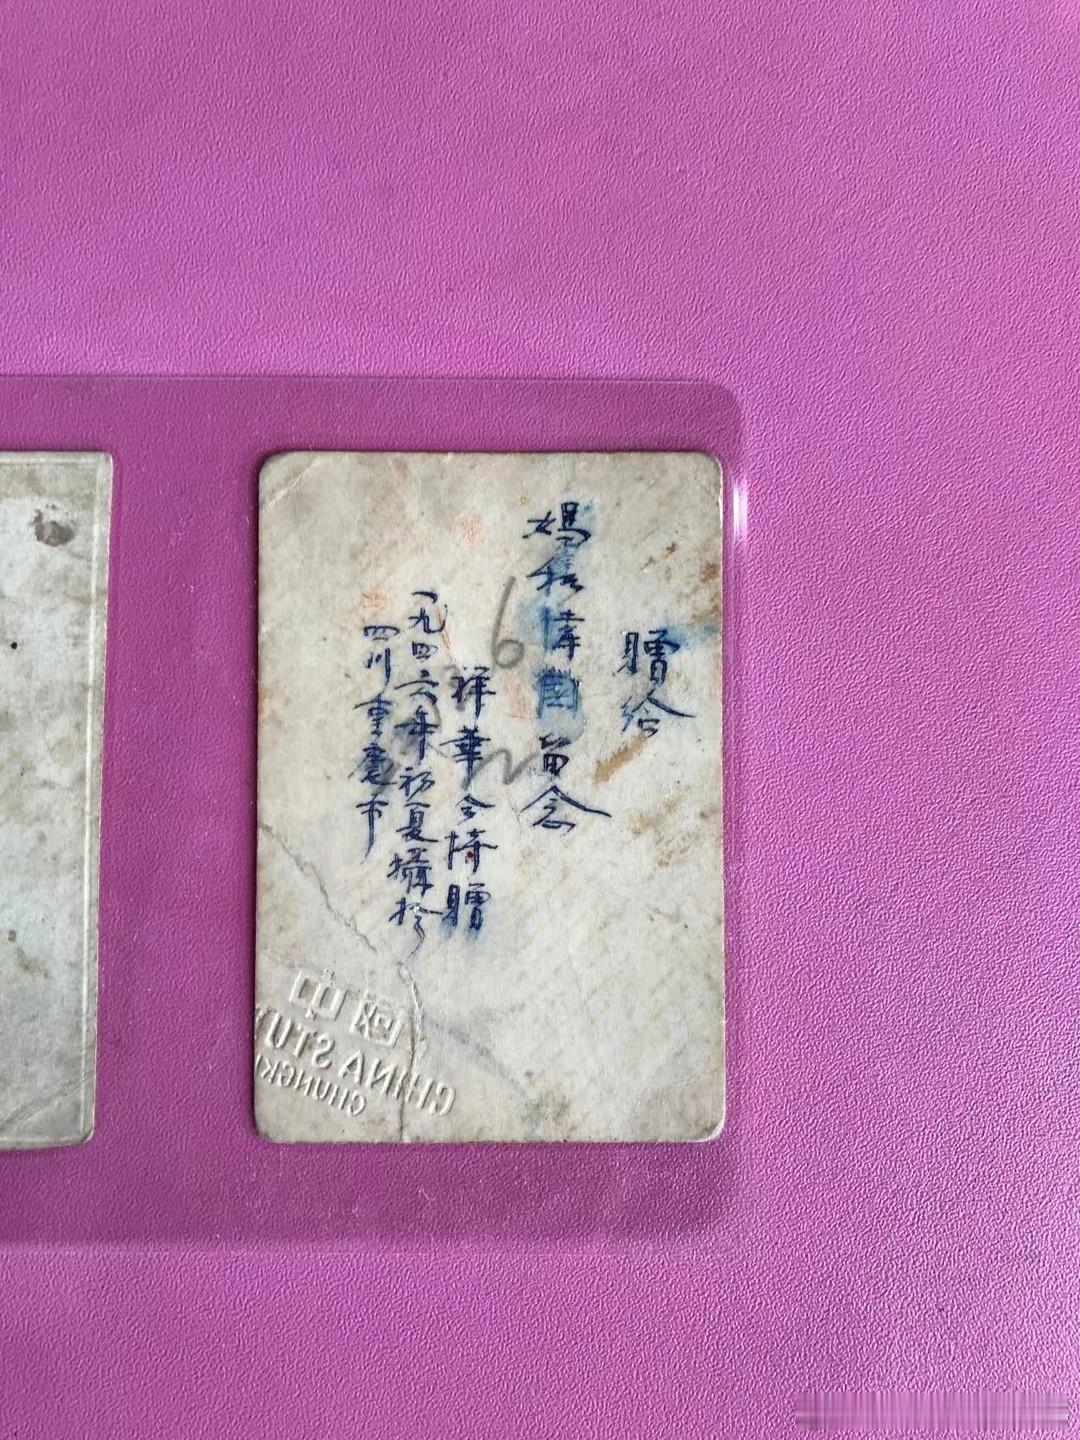 贈给
媽偉国留念
祥華贈
一九四六年初夏攝於
四川重慶市
6
中國
CHINA STU
CHUNGK